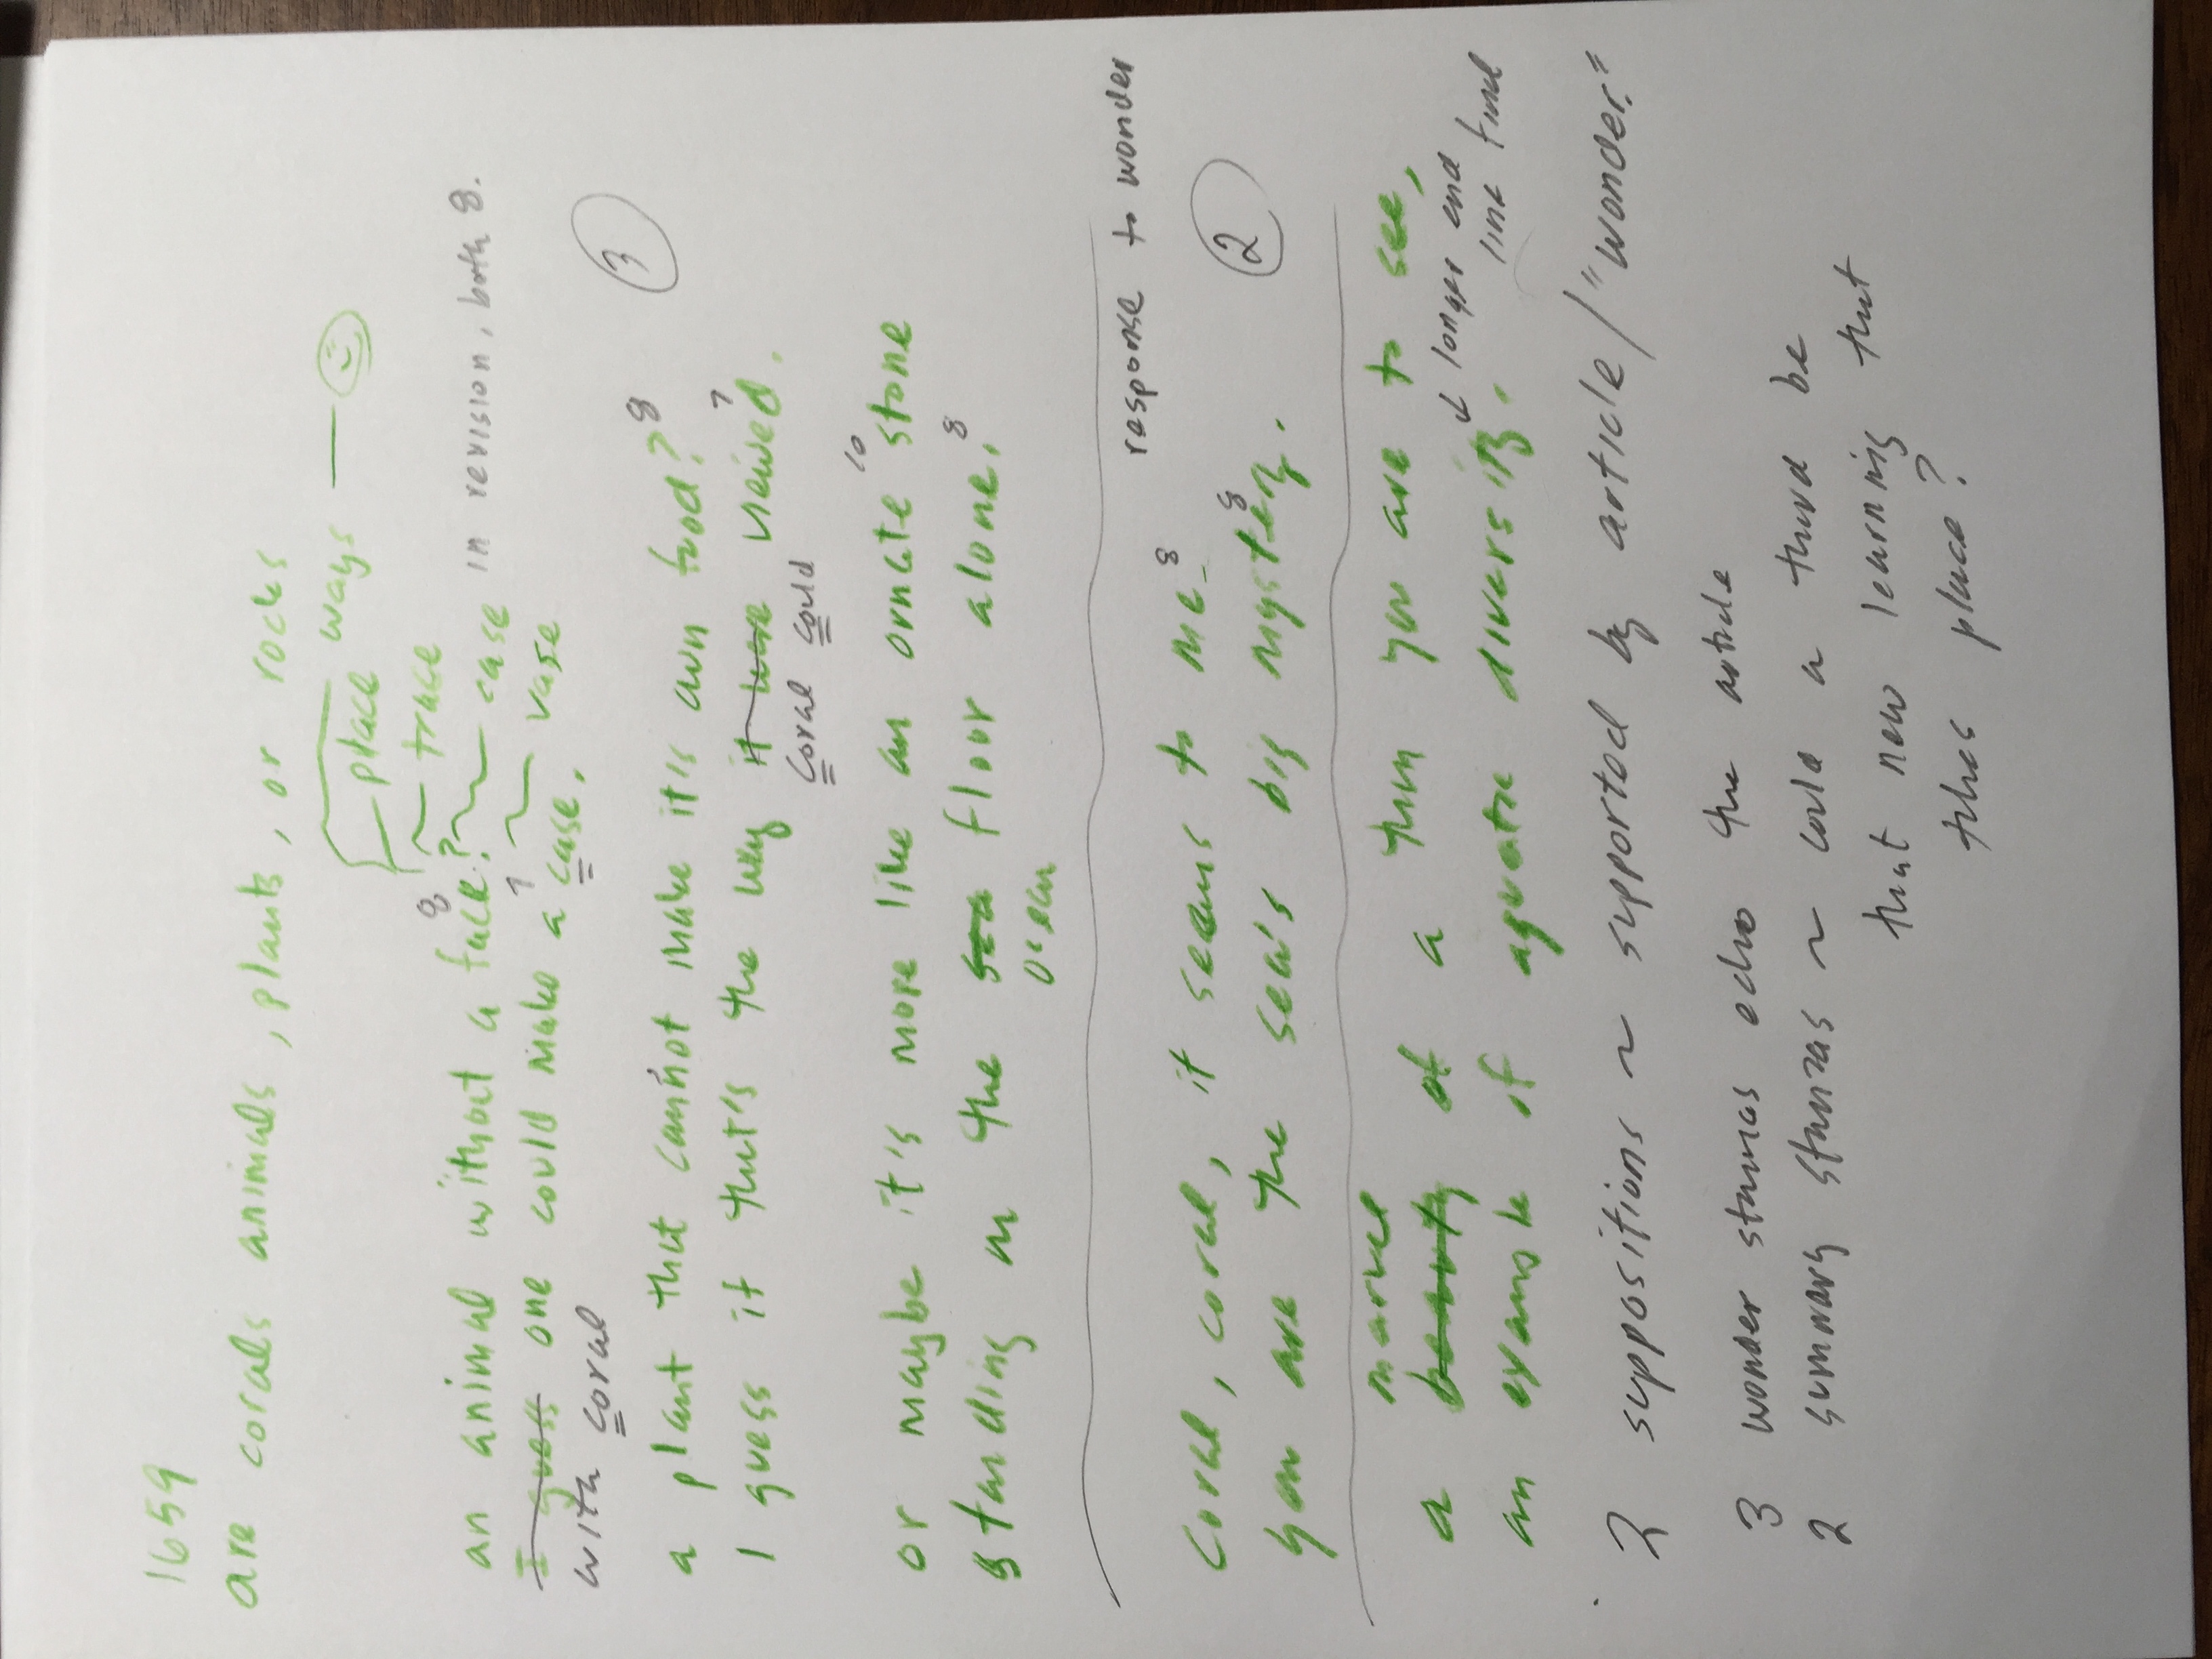 1659
are corals animals, plants, or rocks
place ways — 
trace
an animal without a face? 8 case in revision, both 8.
I guess one could make a case. 7 vase
with coral
3
a plant that cannot make it's own food? 8
I guess if that's the way it were viewed. 7
coral could
or maybe it's more like an ornate stone 10
standing on the sea floor alone. 8
ocean
response to wonder
Coral, coral, it seems to me 8
you are the sea's big mystery. 8
2
marvel
a beauty of a than you are to see,
an example if aquatic diversity. ↓ longer end
line final
2 suppositions ~ supported by article / "wonder."
3 wonder stanzas echo the article
2 summary stanzas ~ could a third be
that new learning that
takes place?